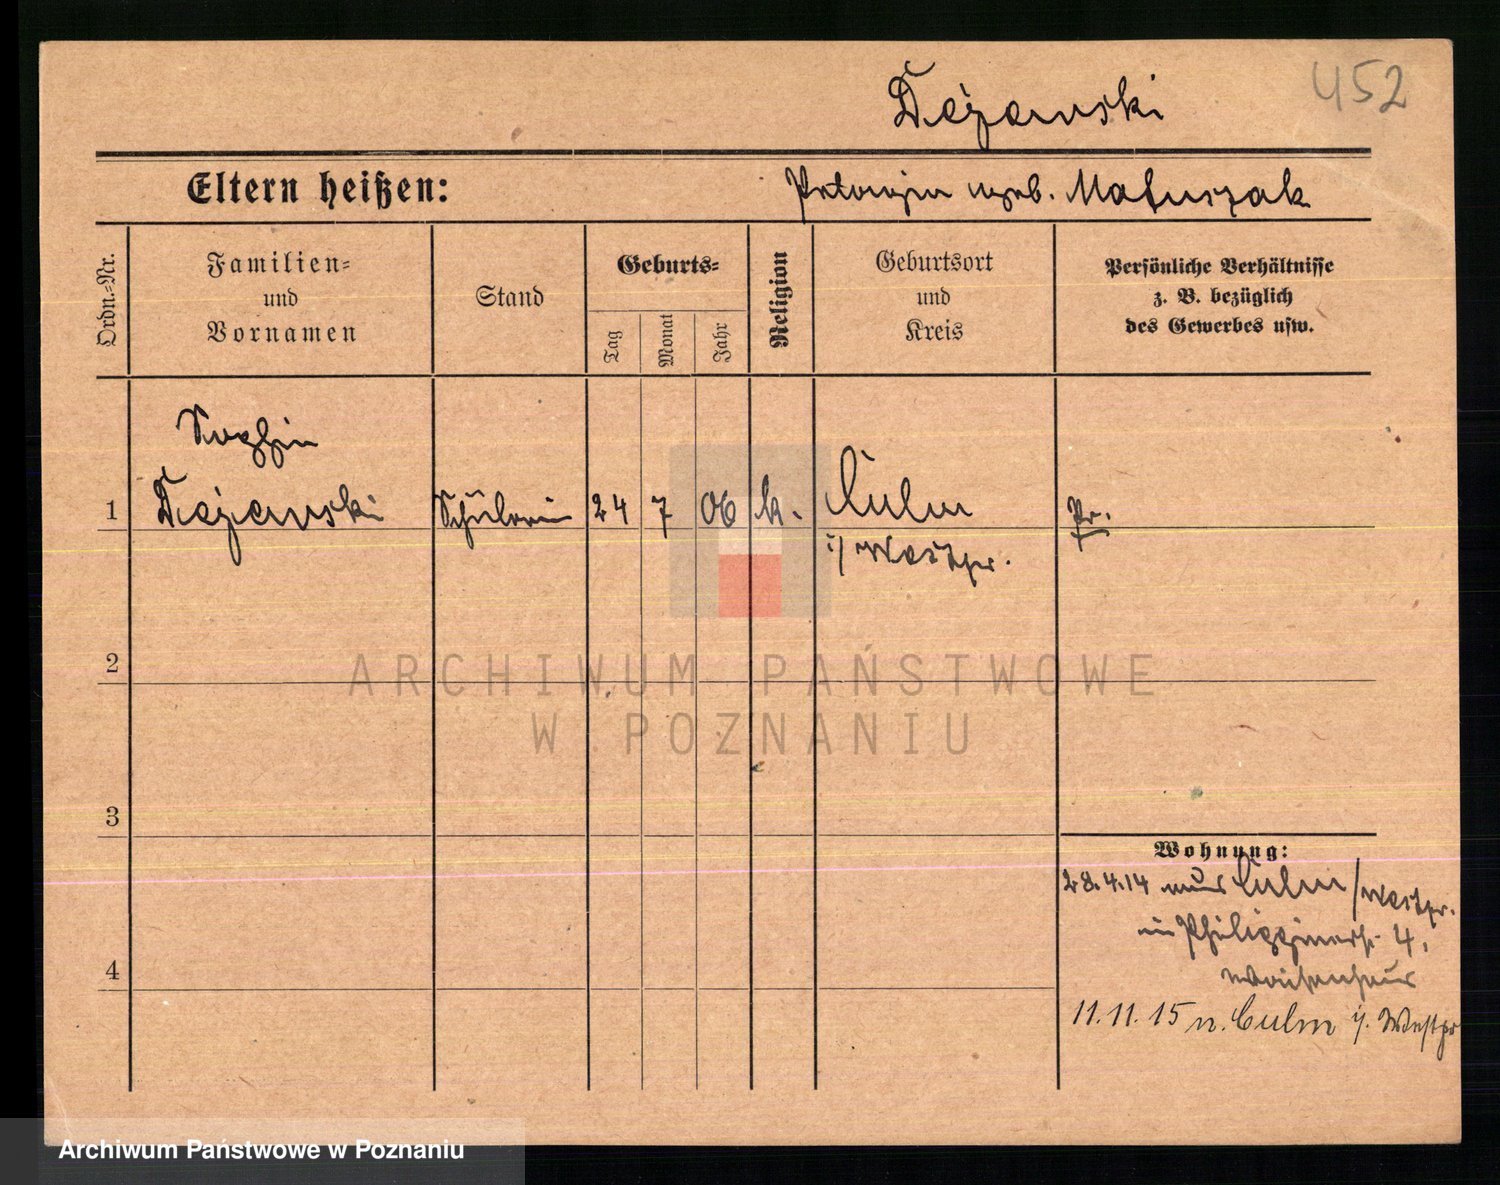 452
Dezewski
Eltern heißen:
geb. Matuszak
Ordn.=Nr.
Familien=
und
Vornamen
Stand
Geburts=
Tag
Monat
Jahr
Religion
Geburtsort
und
Kreis
Persönliche Verhältnisse
z. B. bezüglich
des Gewerbes usw.
Sophie
1
Schülerin
24
7
06
k.
Culm
Pr.
i/ Westpr.
2
ARCHIWUM PAŃSTWOWE
W POZNANIU
3
Wohnung:
28.4.14 aus Culm / Westpr.
in 4,
4
Waisenhaus
11.11.15 n. Culm i/. Westpr
Archiwum Państwowe w Poznaniu